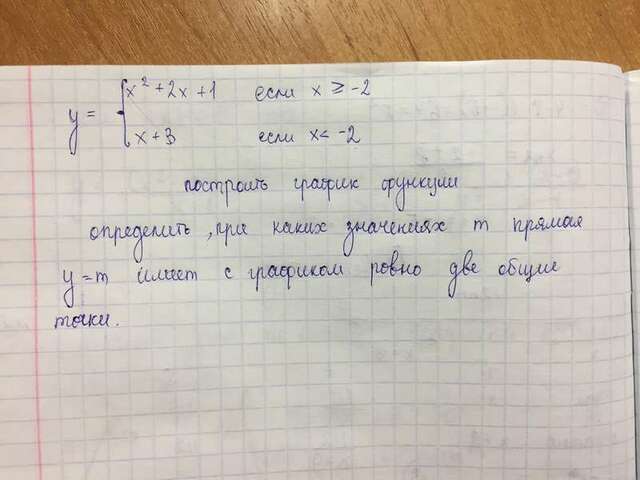 y = { x² + 2x + 1 если x ≥ -2
x + 3 если x < -2
построить график функции
определить, при каких значениях m прямая
y = m имеет с графиком ровно две общие
точки.